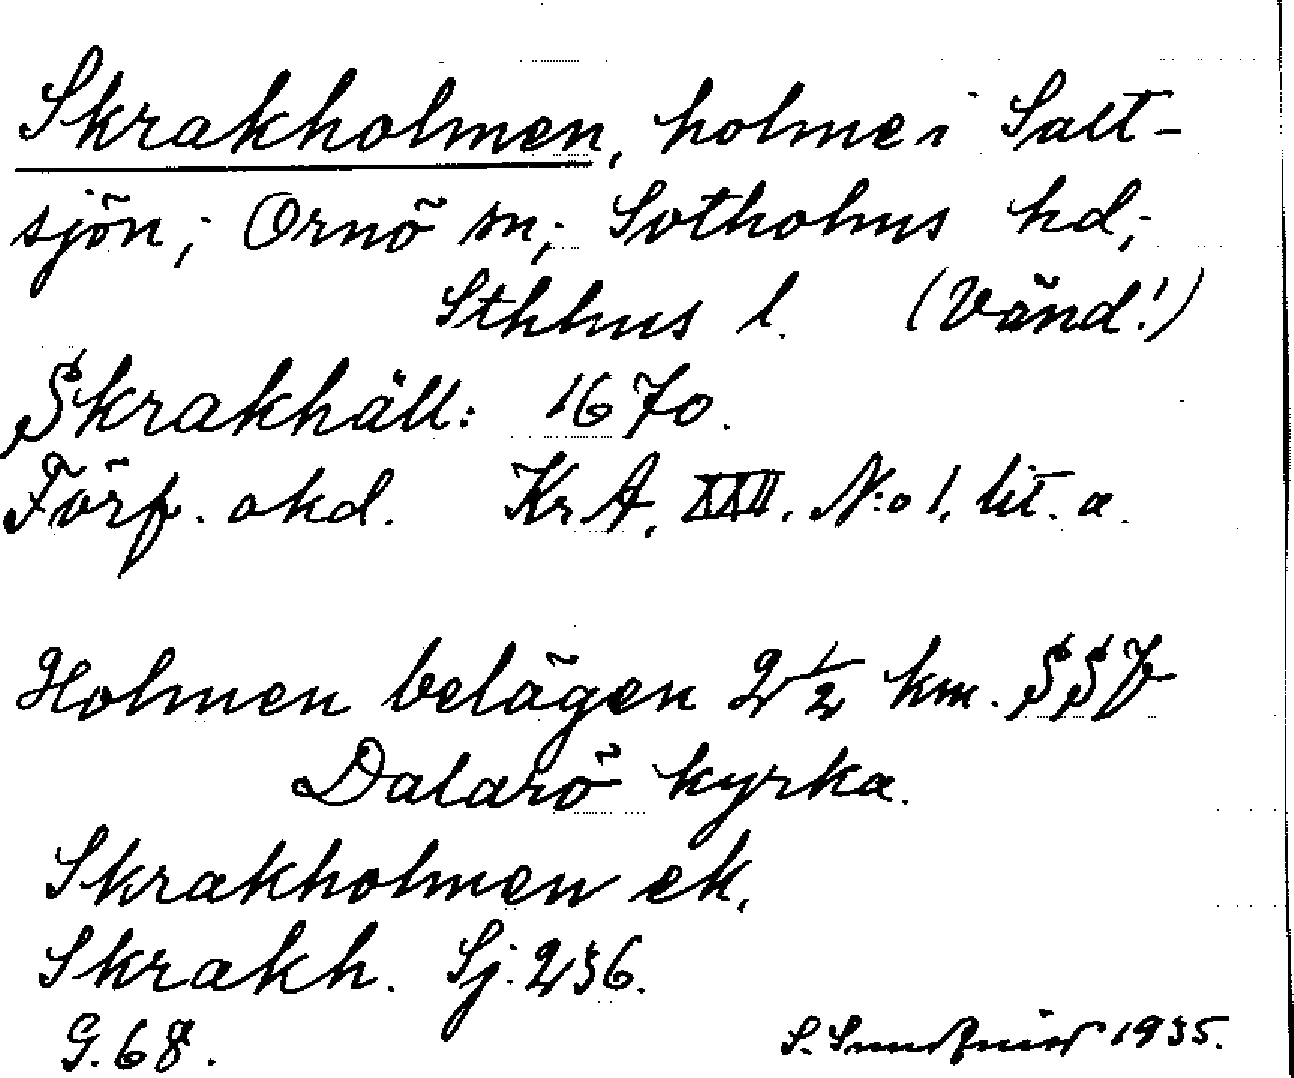 Skrakholmen, holme i Salt-
sjön; Ornö sn; Sotholms hd;
Sthlms l. (Vänd!)
Skrakhäll: 1670.
Förf. okd. Kr A, XXII. N:o 1. lit. a.
Holmen belägen 2 1/2 km. SSV
Dalarö kyrka.
Skrakholmen ek.
Skrakh. Sj. 236.
G. 68.
S. 1935.